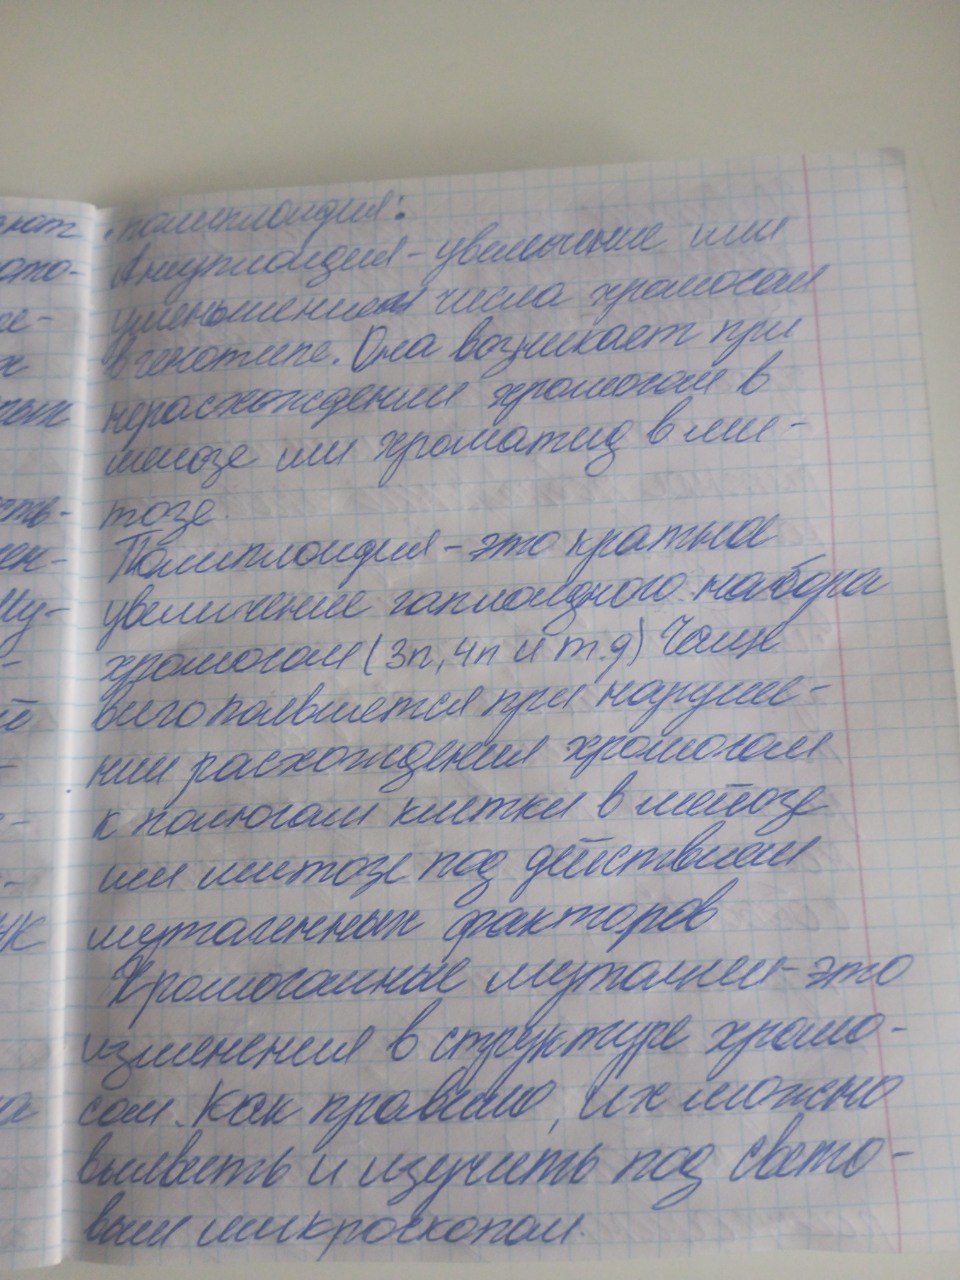 полиплоидия:
Анеуплоидия - увеличение или
уменьшение числа хромосом
в генотипе. Она возникает при
нерасхождении хромосом в
мейозе или хроматид в ми-
тозе.
Полиплоидия - это кратное
увеличение гаплоидного набора
хромосом (3n, 4n и т.д) Чаще
всего появляется при наруше-
нии расхождения хромосом
к полюсам клетки в мейозе
или митозе под действием
мутагенных факторов
Хромосомные мутации - это
изменения в структуре хромо-
сом. Как правило, их можно
выявить и изучить под свето-
вым микроскопом.